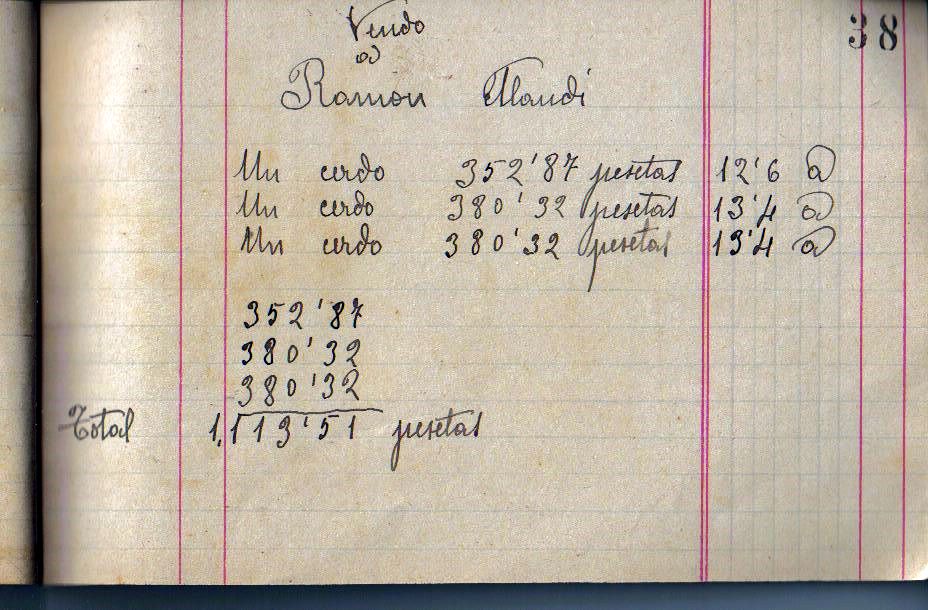 38
Vendo
a
Ramón Alandi
Un cerdo 352'87 pesetas 12'6 @
Un cerdo 380'32 pesetas 13'4 @
Un cerdo 380'32 pesetas 13'4 @
352'87
380'32
380'32
Total 1,113'51 pesetas